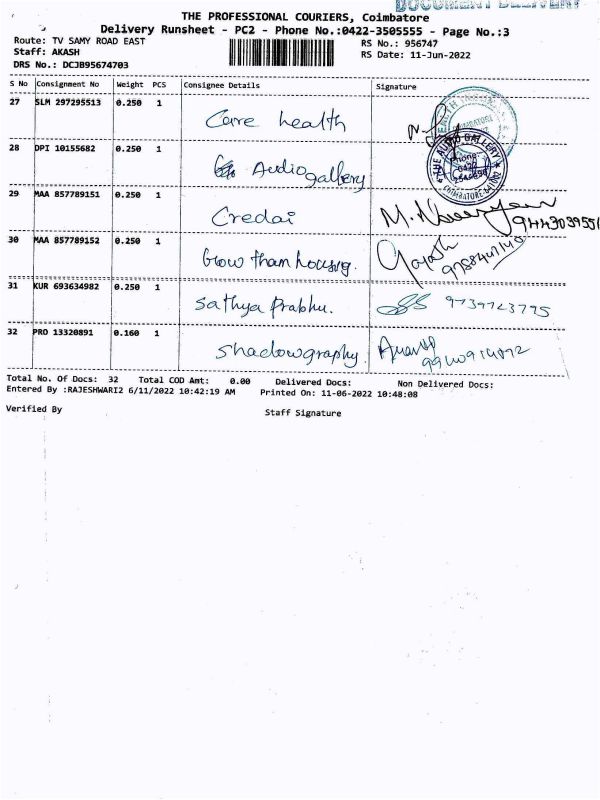 DOCUMENT DELIVERY
THE PROFESSIONAL COURIERS, Coimbatore
Delivery Runsheet - PC2 - Phone No.:0422-3505555 - Page No.:3
Route: TV SAMY ROAD EAST
RS No.: 956747
Staff: AKASH
RS Date: 11-Jun-2022
DRS No.: DCJB95674703
S No Consignment No Weight PCS Consignee Details Signature
27 SLM 297295513 0.250 1 Care health
28 DPI 10155682 0.250 1 Audio gallery
THE AUDIO GALLERY
Phone:
0422
COIMBATORE
29 MAA 857789151 0.250 1 Credai
30 MAA 857789152 0.250 1 Grow tham housing.
31 KUR 693634982 0.250 1 Sathya Prabhu.
32 PRO 13320891 0.160 1 Shadowgraphy.
Total No. Of Docs: 32 Total COD Amt: 0.00 Delivered Docs: Non Delivered Docs:
Entered By :RAJESHWARI2 6/11/2022 10:42:19 AM Printed On: 11-06-2022 10:48:08
Verified By Staff Signature